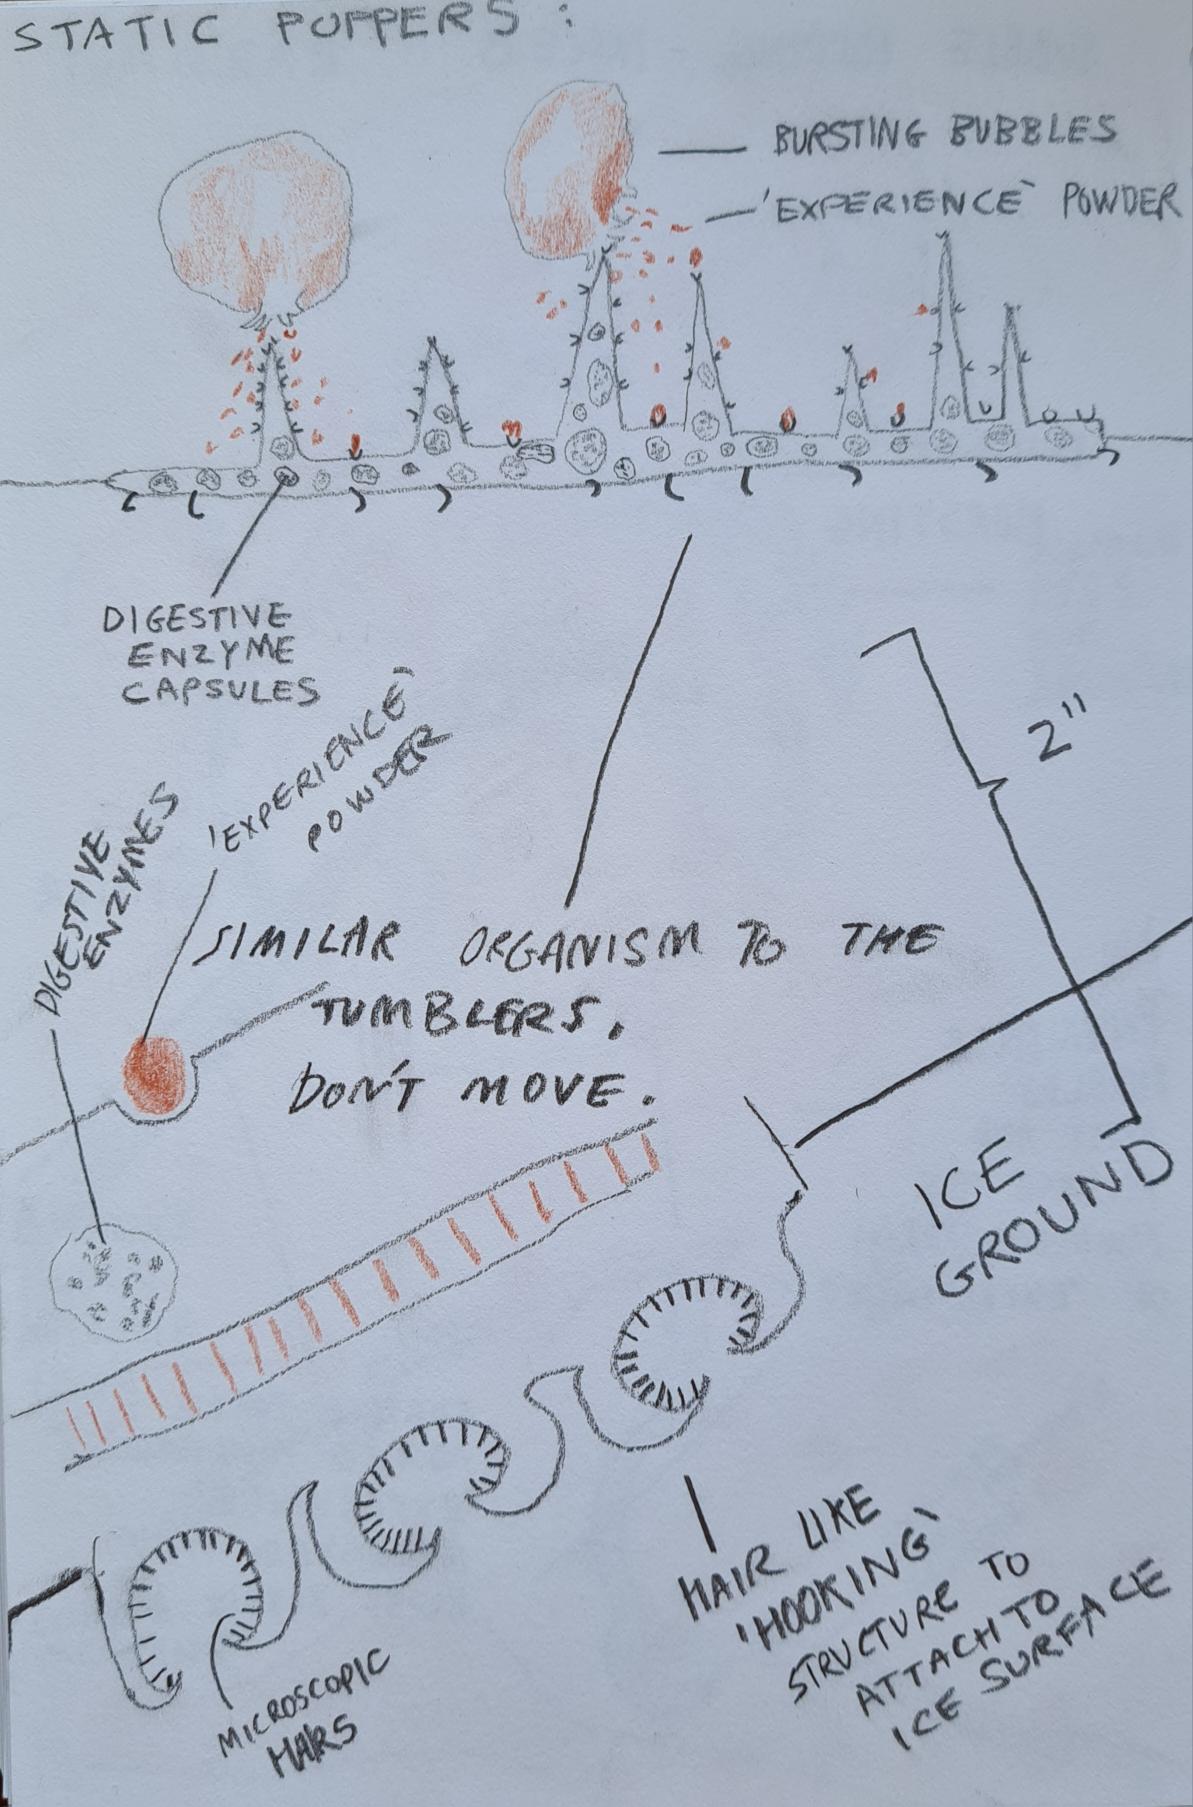 STATIC POPPERS:
BURSTING BUBBLES
'EXPERIENCE' POWDER
DIGESTIVE
ENZYME
CAPSULES
2"
'EXPERIENCE'
POWDER
DIGESTIVE
ENZYMES
SIMILAR ORGANISM TO THE
TUMBLERS.
DON'T MOVE.
ICE
GROUND
HAIR LIKE
'HOOKING'
STRUCTURE TO
ATTACH TO
ICE SURFACE
MICROSCOPIC
HAIRS